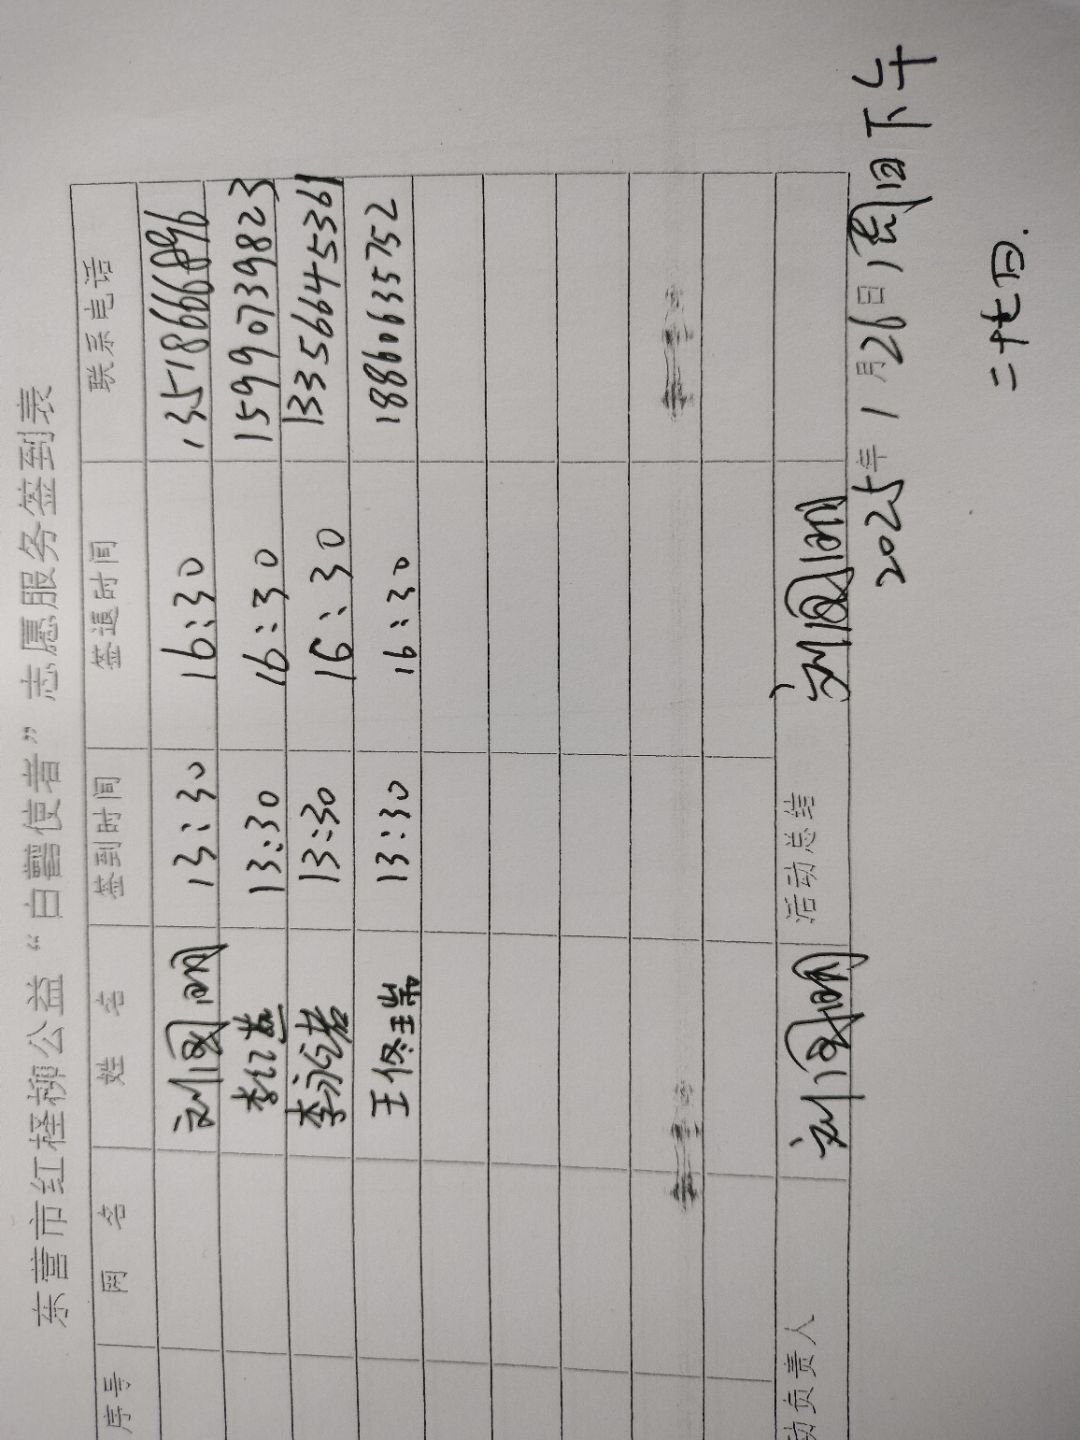 东营市红柽柳公益“白鹭使者”志愿服务签到表
序号 网名 姓名 签到时间 签退时间 联系电话
刘国明 13:30 16:30 13518666896
李红慧 13:30 16:30 15990739823
李永诺 13:30 16:30 13356645361
王修瑞 13:30 16:30 18860635752
动负责人 刘国明 活动总结 刘国明
2025年1月26日(周日)下午
二十七日.